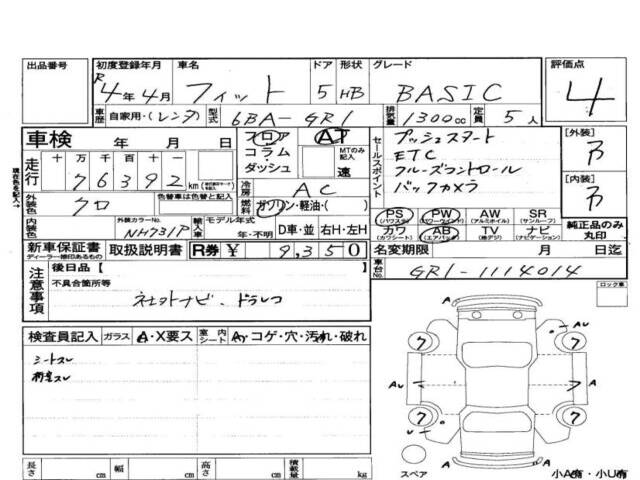 出品番号 初度登録年月 車名 ドア 形状 グレード 評価点
R4年4月 フィット 5 HB BASIC 4
車歴 自家用・(レンタ) 型式 6BA-GR1 排気量 1300cc 定員 5人
車検 年 月 日 フロア AT セールスポイント プッシュスタート [外装]
コラム・ MTのみ記入 ETC
走行 十万千百十一 ダッシュ 速 クルーズコントロール
76392 km 冷房 AC バックカメラ [内装]
外装色 クロ 色替車は色替と記入 燃料 ガソリン・軽油・( )
内装色 外装カラーNo. NH731P 輸入車 モデル年式 年・不明 D車・並 右H・左H
PS (パワステ) PW (パワーウインド) AW (アルミホイル) SR (サンルーフ) 純正品のみ丸印
カワ (カワシート) AB (エアバック) TV (地デジ) ナビ (ナビゲーション)
新車保証書 ディーラー捺印あるもの 取扱説明書 R券 ¥ 9,350 名変期限 月 日迄
注意事項 後日品【 】 車台No. GR1-1114014
不具合箇所等 ロック車
社外ナビ、ドラレコ
検査員記入 ガラス A・X要ス 室内シート Aγ コゲ・穴・汚れ・破れ
シートスレ
A AU 7 7
AU A A
7 7
A
長さ cm 幅 cm 高さ cm 積載量 kg スペア 小A有・小U有